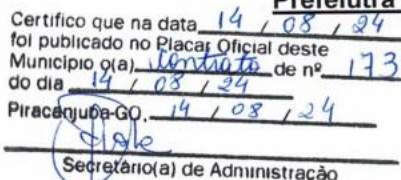 Prefeitura
Certifico que na data 14 / 08 / 24
foi publicado no Placar Oficial deste
Município o(a) Contrato de nº 173
do dia 14 / 08 / 24
Piracanjuba-GO, 14 / 08 / 24
Secretário(a) de Administração